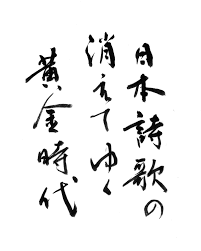 日本詩歌の
消えてゆく
黄金時代